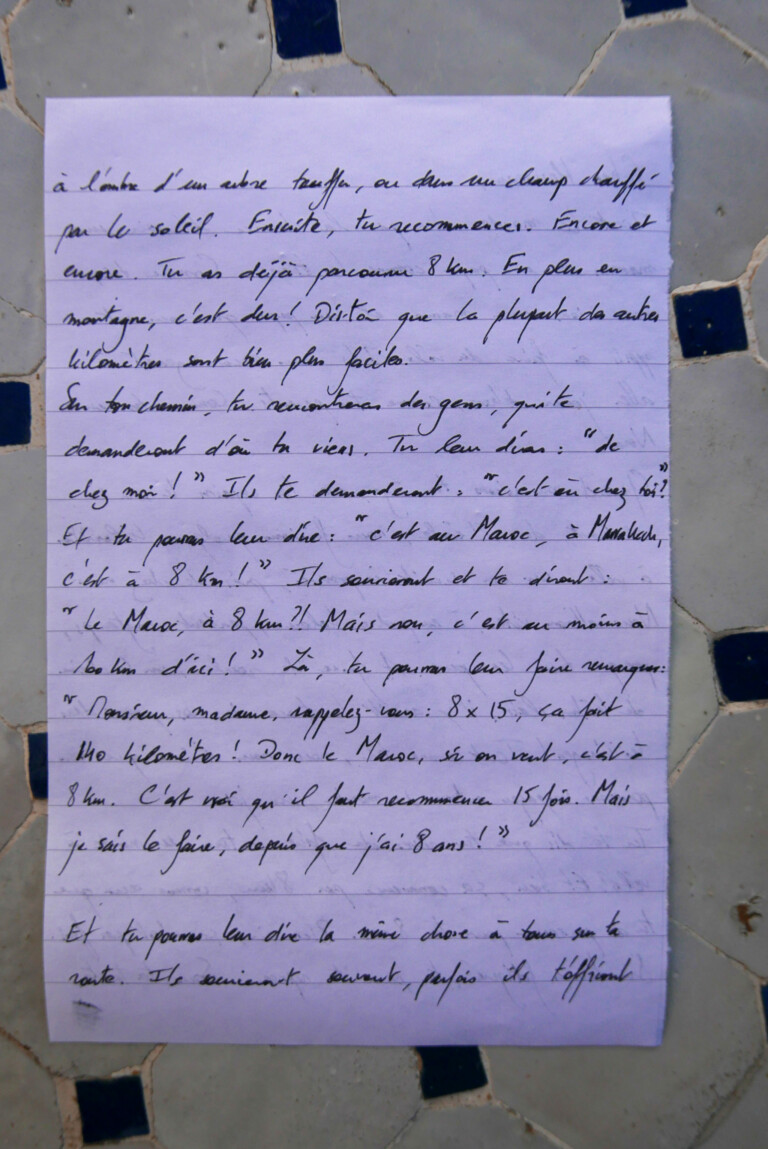 à l'ombre d'un arbre touffu, ou dans un champ chauffé
par le soleil. Ensuite, tu recommences. Encore et
encore. Tu as déjà parcouru 8 km. En plus en
montagne, c'est dur! Dis-toi que la plupart des autres
kilomètres sont bien plus faciles.
Sur ton chemin, tu rencontreras des gens, qui te
demanderont d'où tu viens. Tu leur diras : "de
chez moi ! " Ils te demanderont : "c'est où chez toi?"
Et tu pourras leur dire : "c'est au Maroc, à Marrakech,
c'est à 8 km ! " Ils souriront et te diront :
"Le Maroc, à 8 km ?! Mais non, c'est au moins à
100 km d'ici ! " Là, tu pourras leur faire remarquer :
"Monsieur, madame, rappelez-vous : 8 x 15, ça fait
140 kilomètres ! Donc le Maroc, si on veut, c'est à
8 km. C'est vrai qu'il faut recommencer 15 fois. Mais
je sais le faire, depuis que j'ai 8 ans ! "
Et tu pourras leur dire la même chose à tous sur ta
route. Ils souriront souvent, parfois ils t'offriront